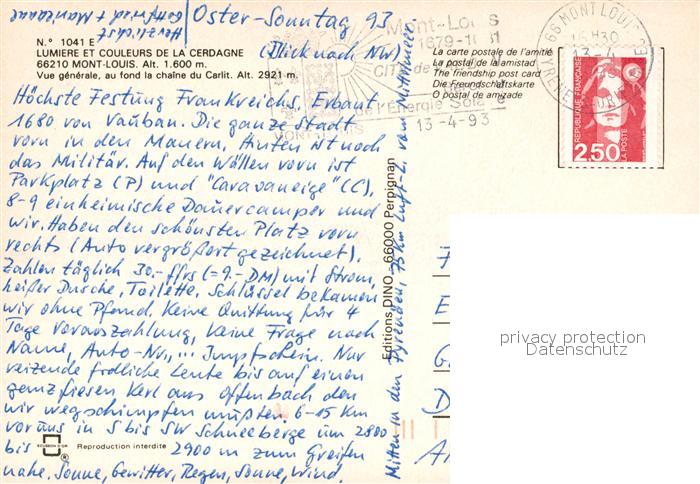 Oster-Sonntag 93
(Blick nach NW)
Herzlichst
Gottfried + Marzanne
N.° 1041 E
LUMIERE ET COULEURS DE LA CERDAGNE
66210 MONT-LOUIS. Alt. 1.600 m.
Vue générale, au fond la chaîne du Carlit. Alt. 2921 m.
Höchste Festung Frankreichs. Erbaut
1680 von Vauban. Die ganze Stadt
vorn in den Mauern, hinten ist noch
das Militär. Auf den Wällen vorn ist
Parkplatz (P) und "Caravaneige" (C).
8-9 einheimische Dauercamper und
wir. Haben den schönsten Platz vorn
rechts (Auto vergrößert gezeichnet).
Zahlen täglich 30,- ffrs (=9.-DM) mit Strom,
heißer Dusche, Toilette. Schlüssel bekamen
wir ohne Pfand. Keine Quittung für 4
Tage Vorauszahlung, keine Frage nach
Name, Auto-Nr., ... Impfschein. Nur
reizende fröhliche Leute bis auf einen
ganz fiesen Kerl aus Offenbach den
wir wegschimpfen mußten. 6-15 Km
vor uns in S bis SW Schneeberge um 2800
bis 2900 m zum Greifen
nahe. Sonne, Gewitter, Regen, Sonne, Wind.
Reproduction interdite
Editions DINO - 66000 Perpignan
Mitten in den Pyrenäen, 75 km Luft-L. vom Mittelmeer
Mont-Louis
1679-1981
de l'Énergie Sola
MONT-LOUIS
13-4-93
La carte postale de l'amitié
La postal de la amistad
The friendship post card
Die Freundschaftskarte
O postal de amizade
66 MONT LOUIS
15H30
13-4
REPUBLIQUE FRANÇAISE
2,50
LA POSTE
F
E
G
D
A
privacy protection
Datenschutz